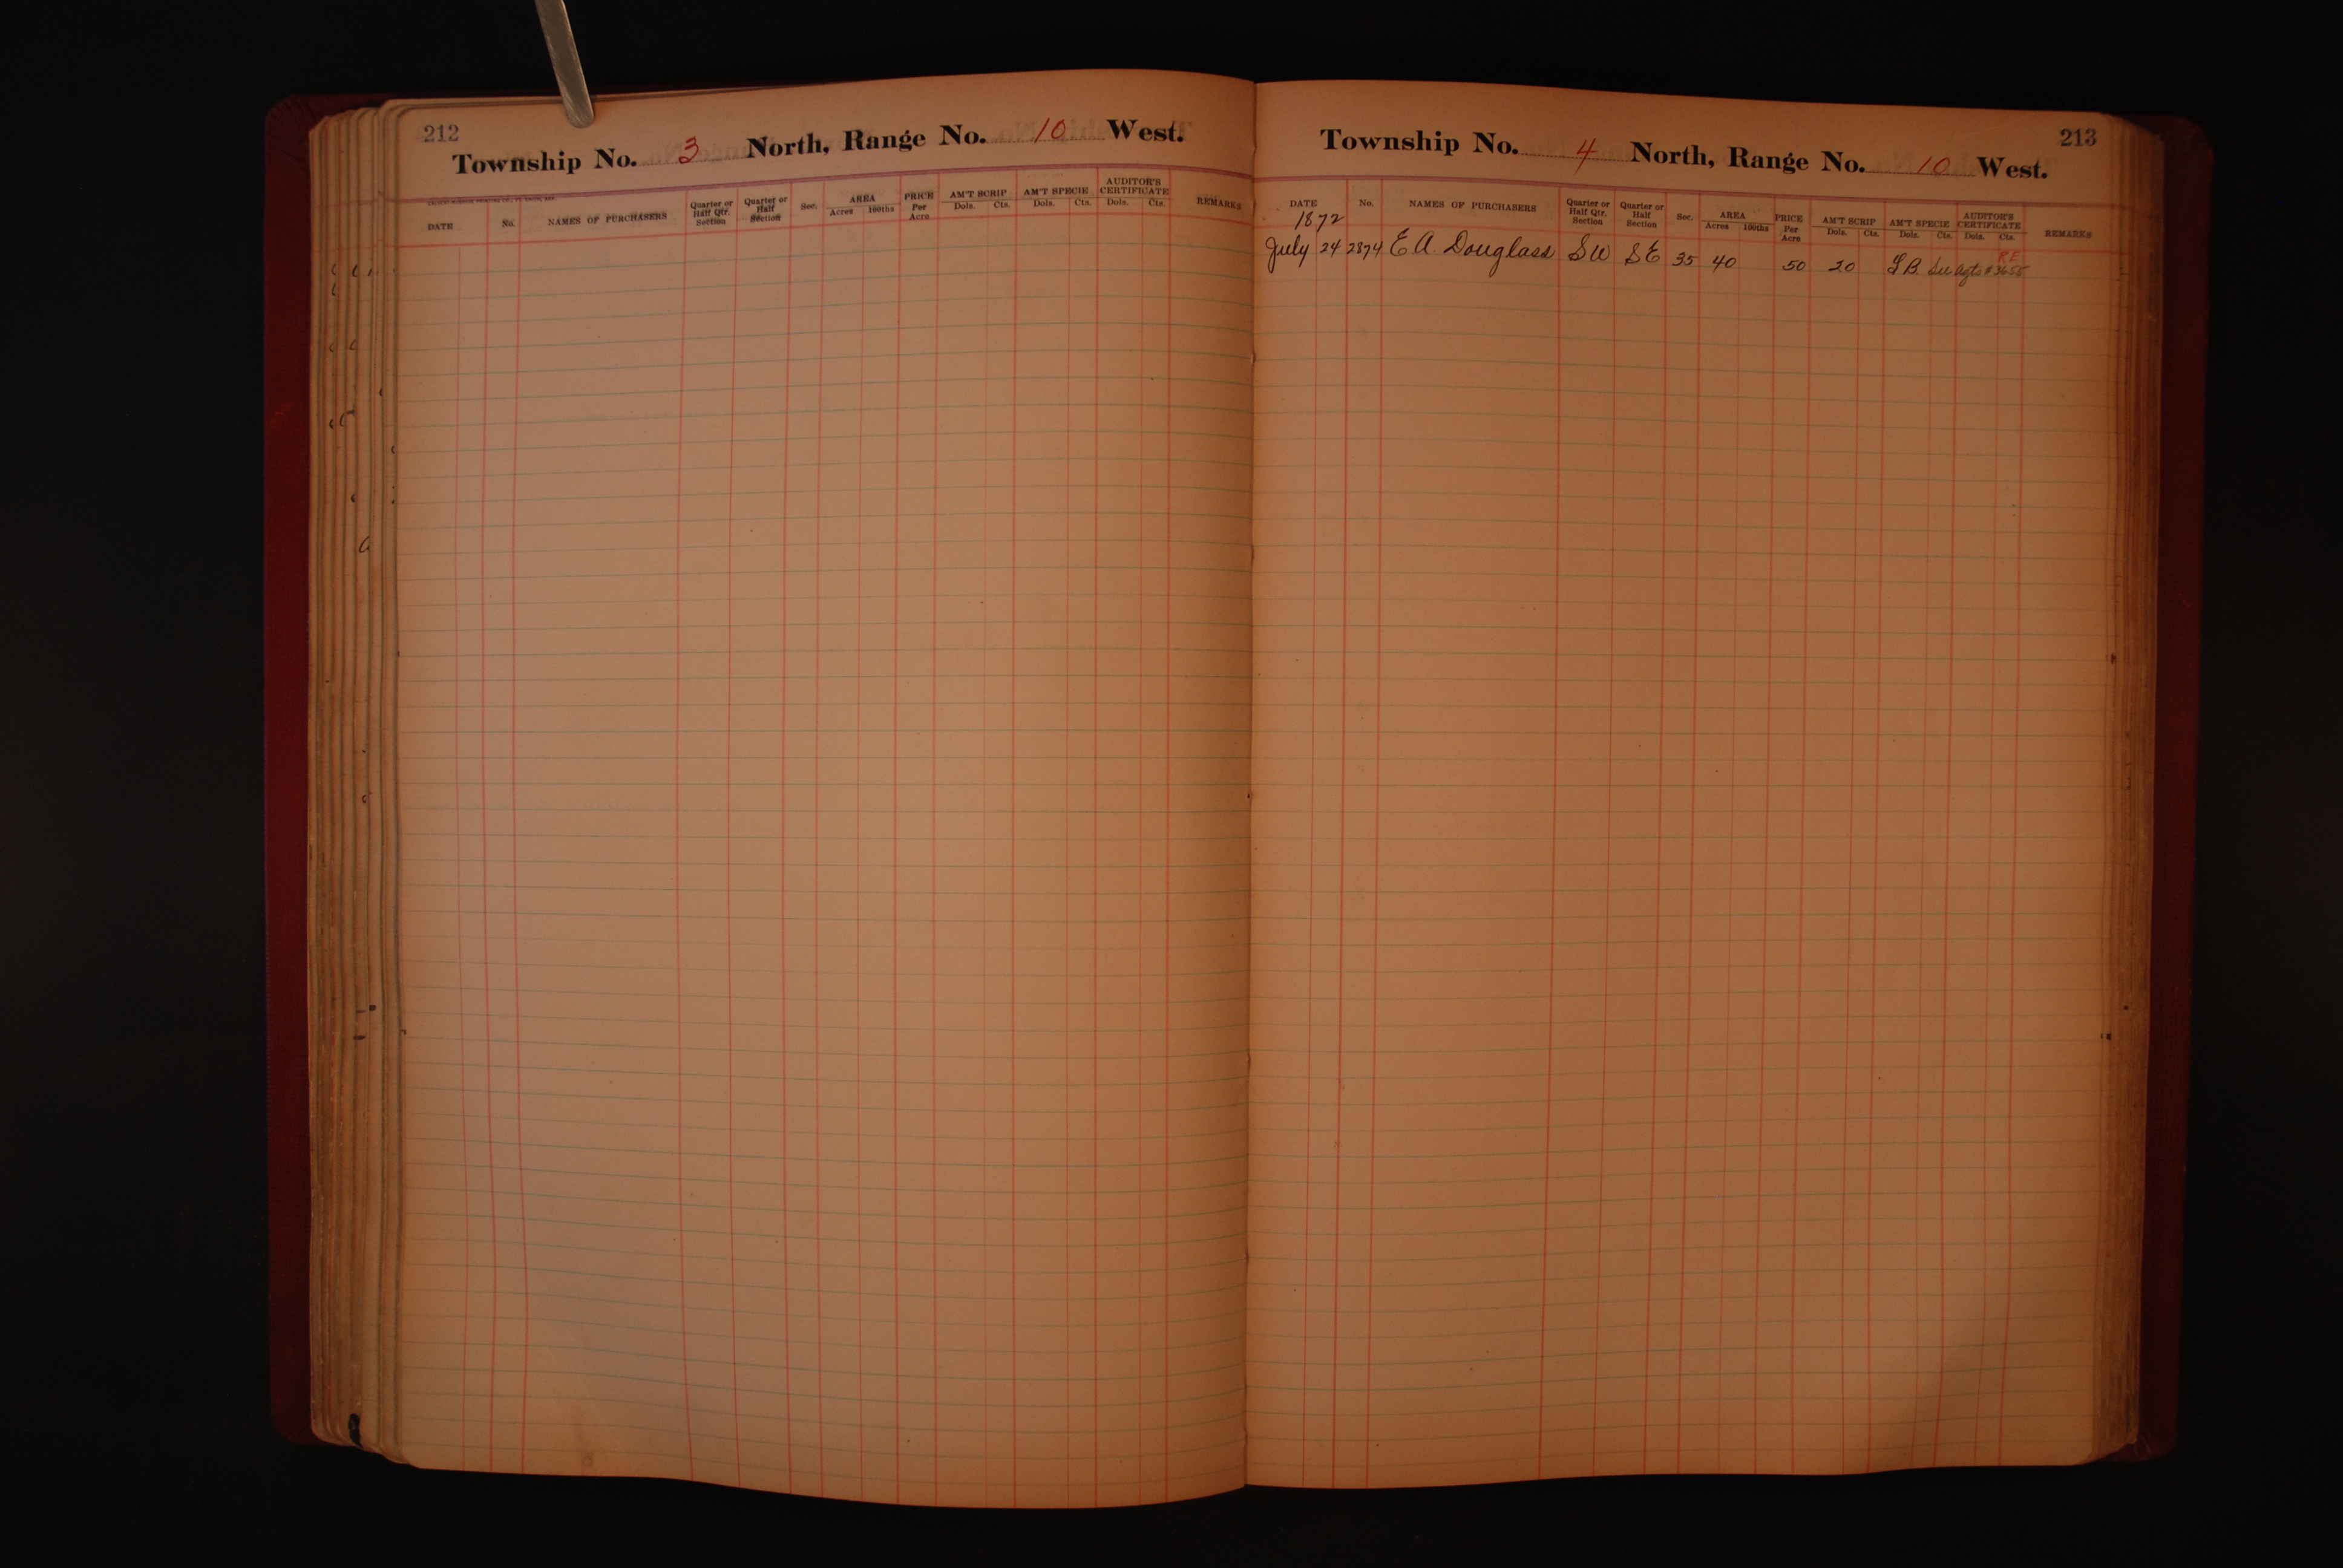 212
Township No. 3 North, Range No. 10 West.
DATE No. NAMES OF PURCHASERS Quarter or Half Qtr. Section Quarter or Half Section Sec. AREA Acres 100ths PRICE Per Acre AM'T SCRIP Dols. Cts. AM'T SPECIE Dols. Cts. AUDITOR'S CERTIFICATE Dols. Cts. REMARKS
213
Township No. 4 North, Range No. 10 West.
DATE No. NAMES OF PURCHASERS Quarter or Half Qtr. Section Quarter or Half Section Sec. AREA Acres 100ths PRICE Per Acre AM'T SCRIP Dols. Cts. AM'T SPECIE Dols. Cts. AUDITOR'S CERTIFICATE Dols. Cts. REMARKS
1872
R.E.
July 24 2874 E A Douglass SW SE 35 40 50 20